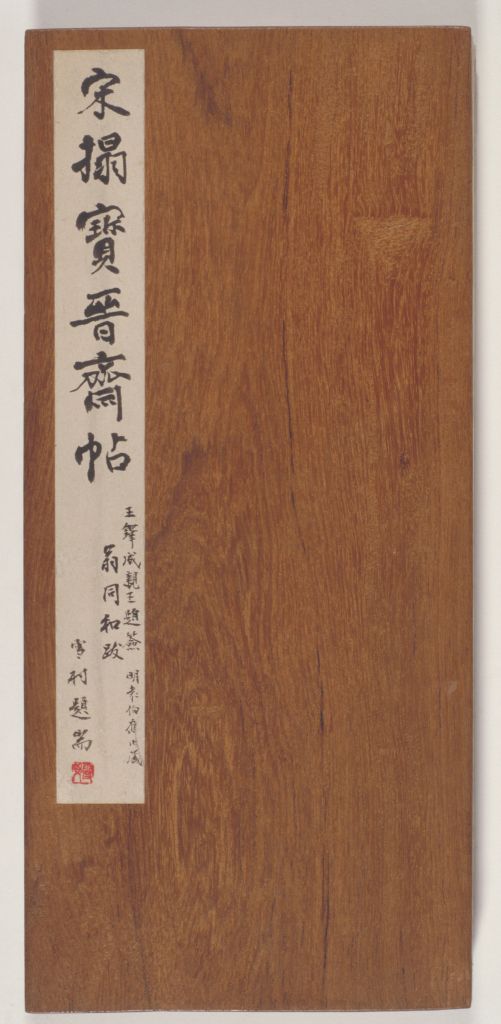 宋搨寶晉齋帖
王鐸成親王題簽 明袁伯應藏
翁同和跋
雪村題耑